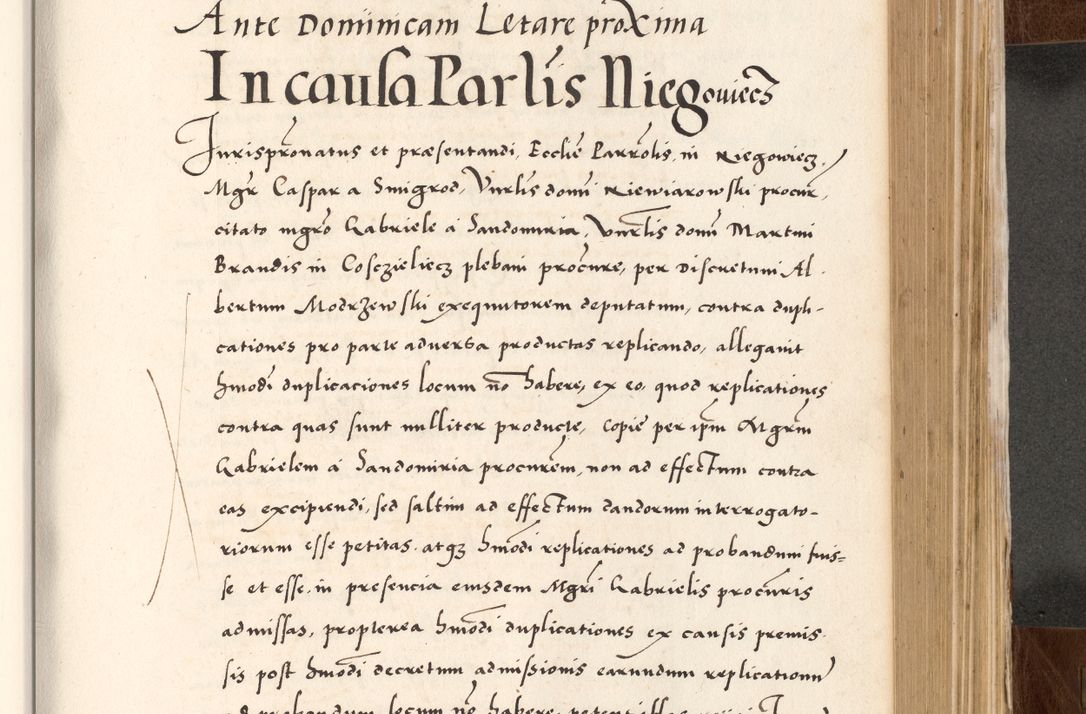 Ante Dominicam Letare proxima
In causa Parlis Niegoviecz
Jurispronatus et præsentandi, Ecclie Parrolis, in Niegowiecz,
Mgr Caspar a Smigrod, Vnrlis domi Niewiarowski procur,
citato mgro Gabriele á Sandomiria, Vnrlis domi Martini
Brandis in Cosczieliecz plebani procure, per Discretum Al-
bertum Modrzewski exequutorem deputatum, contra dupli-
cationes pro parte adversa productas replicando, allegavit
hmodi duplicaciones locum no habere, ex eo, quod replicationes
contra quas sunt nulliter producte, copie per ipm Mgrm
Gabrielem á Sandomiria procurem, non ad effectum contra
eas excipiendi, sed saltim ad effectum dandorum interrogato-
riorum esse petitas, atqz hmodi replicationes ad probandum fuis=
se et esse, in presencia eiusdem Mgri Gabrielis procuris
admissas, propterea hmodi duplicationes ex causis premis-
sis post hmodi decretum admissionis earundum replicationu
ad probandum locum no habere, petent